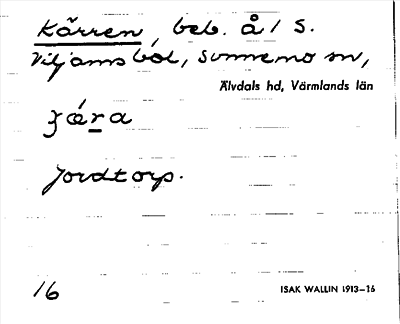 Kärren, beb. å 1 S.
Viljamsbol, Sunnemo sn,
Älvdals hd, Värmlands län
ʒǽra
Jordtorp.
16
ISAK WALLIN 1913–16